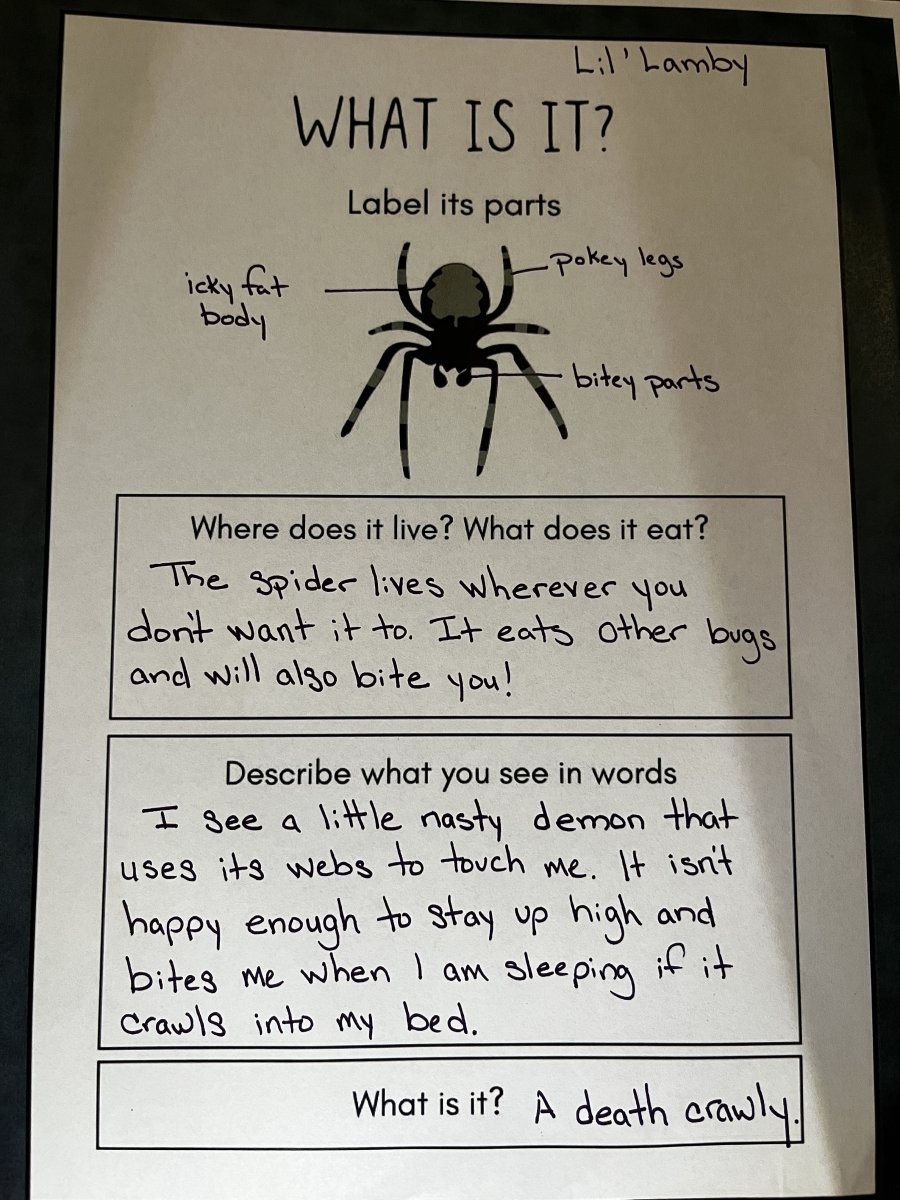 Lil' Lamby
WHAT IS IT?
Label its parts
pokey legs
icky fat
body
bitey parts
Where does it live? What does it eat?
The spider lives wherever you
don't want it to. It eats other bugs
and will also bite you!
Describe what you see in words
I see a little nasty demon that
uses its webs to touch me. It isn't
happy enough to stay up high and
bites me when I am sleeping if it
crawls into my bed.
What is it? A death crawly.